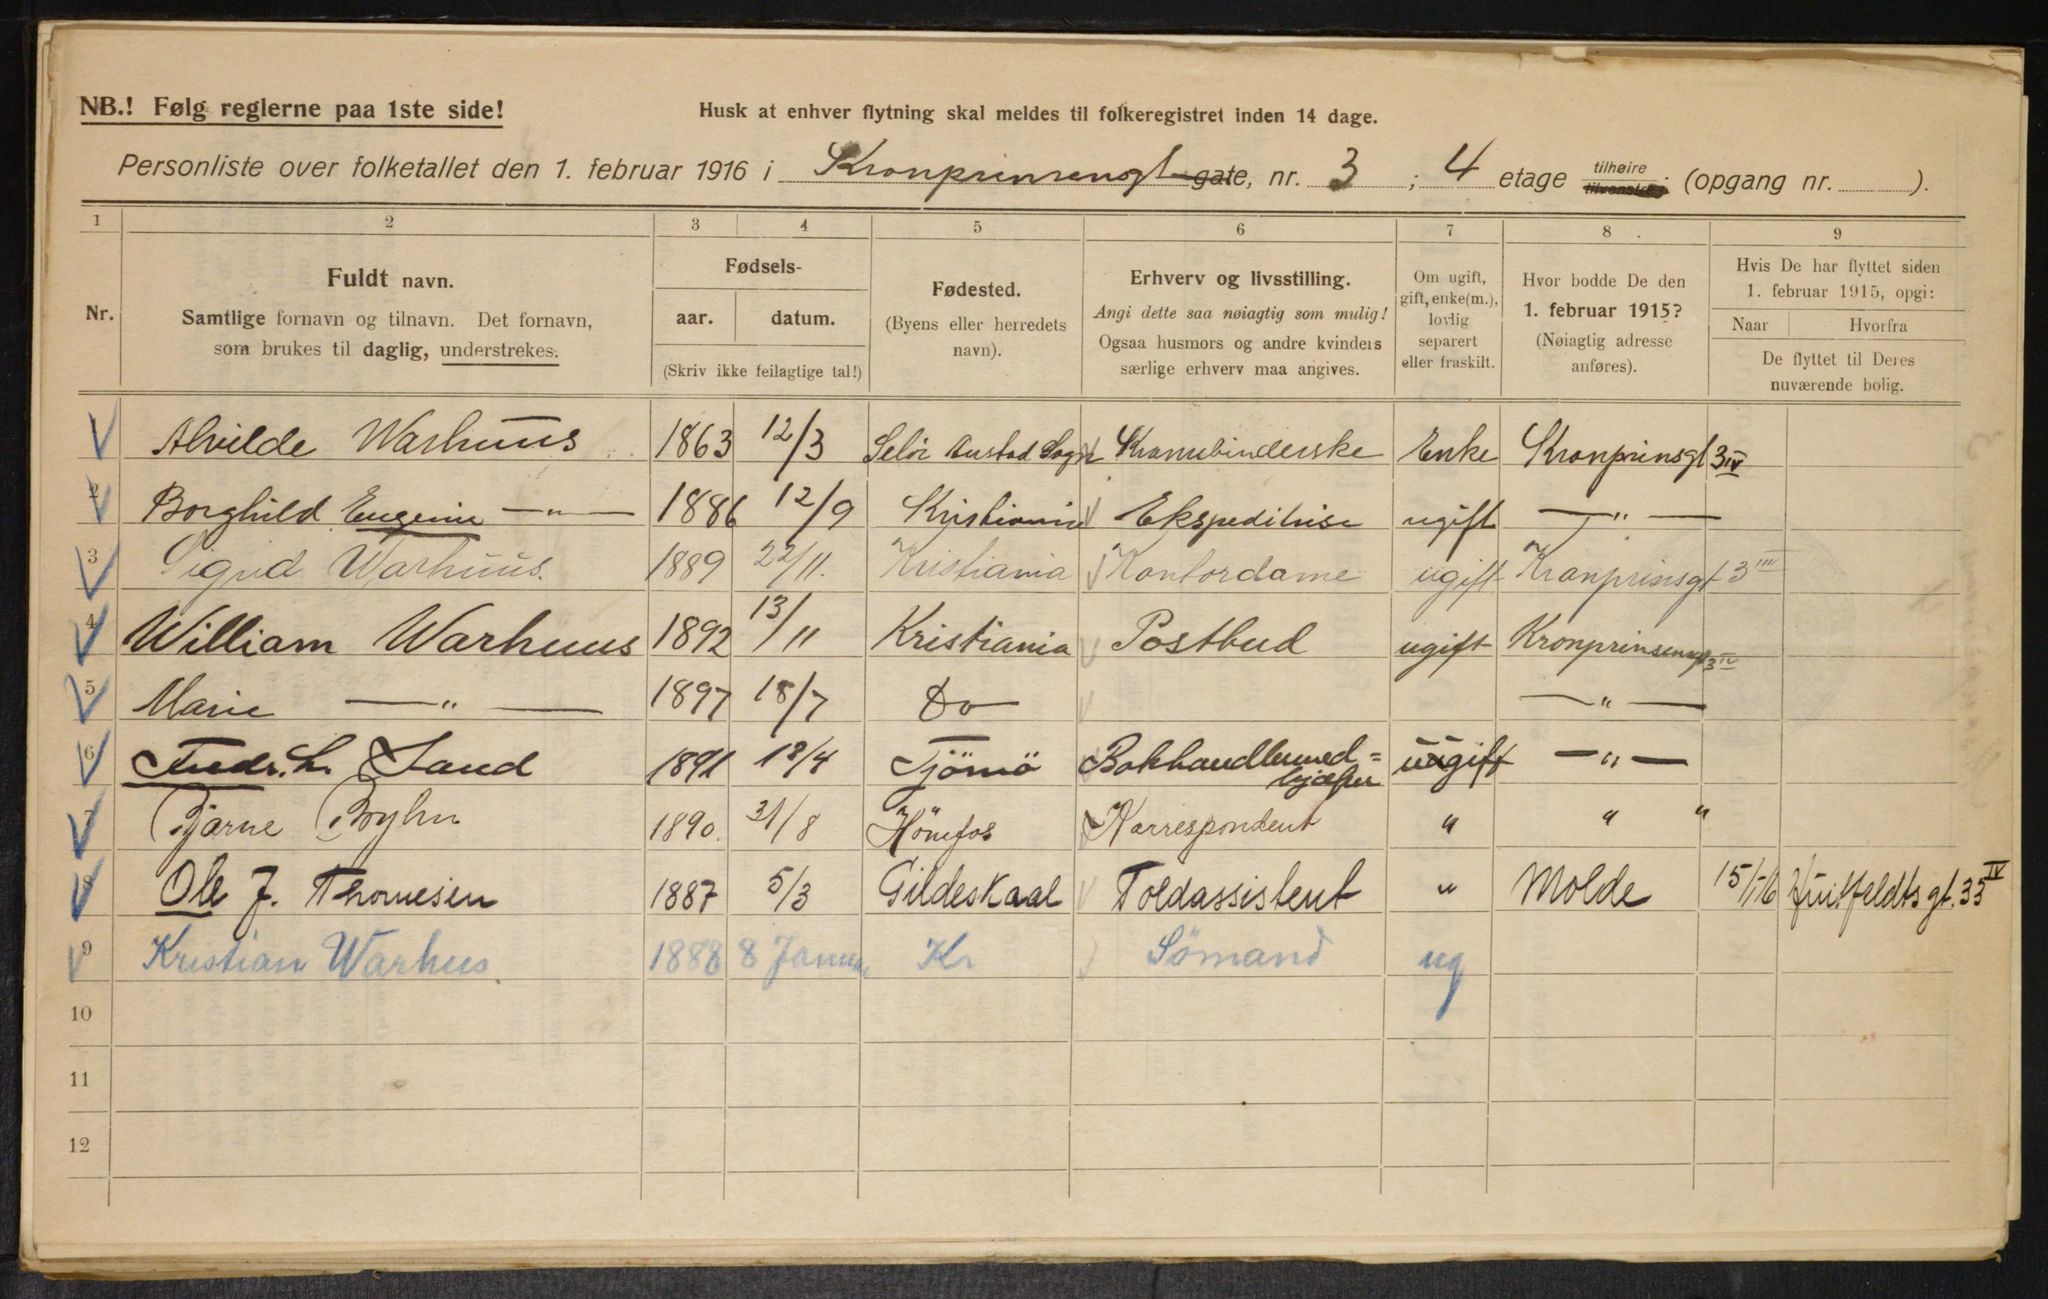 NB.! Følg reglerne paa 1ste side!
Husk at enhver flytning skal meldes til folkeregistret inden 14 dage.
Personliste over folketallet den 1. februar 1916 i Kronprinsensgt gate, nr. 3 ; 4 etage tilhøire tilvenstre (opgang nr. ).
1 2 3 4 5 6 7 8 9
Nr.
Fuldt navn.
Samtlige fornavn og tilnavn. Det fornavn,
som brukes til daglig, understrekes.
Fødsels-
aar. datum.
(Skriv ikke feilagtige tal!)
Fødested.
(Byens eller herredets
navn).
Erhverv og livsstilling.
Angi dette saa nøiagtig som mulig!
Ogsaa husmors og andre kvinders
særlige erhverv maa angives.
Om ugift,
gift, enke(m.),
lovlig
separert
eller fraskilt.
Hvor bodde De den
1. februar 1915?
(Nøiagtig adresse
anføres).
Hvis De har flyttet siden
1. februar 1915, opgi:
Naar Hvorfra
De flyttet til Deres
nuværende bolig.
Alvilde Warhuus 1863 12/3 Selör Austad Sogn Kransbinderske Enke Kronprinsgt 3 IV
2 Borghild Eugenie —"— 1886 12/9 Kristiania Ekspeditrise ugift —"—
3 Sigrid Warhuus. 1889 22/11. Kristiania Kontordame ugift Kronprinsgt 3 IIII
4 William Warhuus 1892 13/11 Kristiania Postbud ugift Kronprinsensgt 3 IV
5 Marie —"— 1897 18/7 Do —"—
6 Fredr. L. Sand 1891 18/4 Tjömö Bokhandlermed=
hjælper ugift —"—
7 Bjarne Bryhn 1890. 31/8 Hönefos Korrespondent " " "
8 Ole J. Thomesen 1887 5/3 Gildeskaal Toldassistent " Molde 15/1-16 Huitfeldts gt. 33 IV
9 Kristian Warhus. 1888 8 Januar Kr Sömand ug
10
11
12